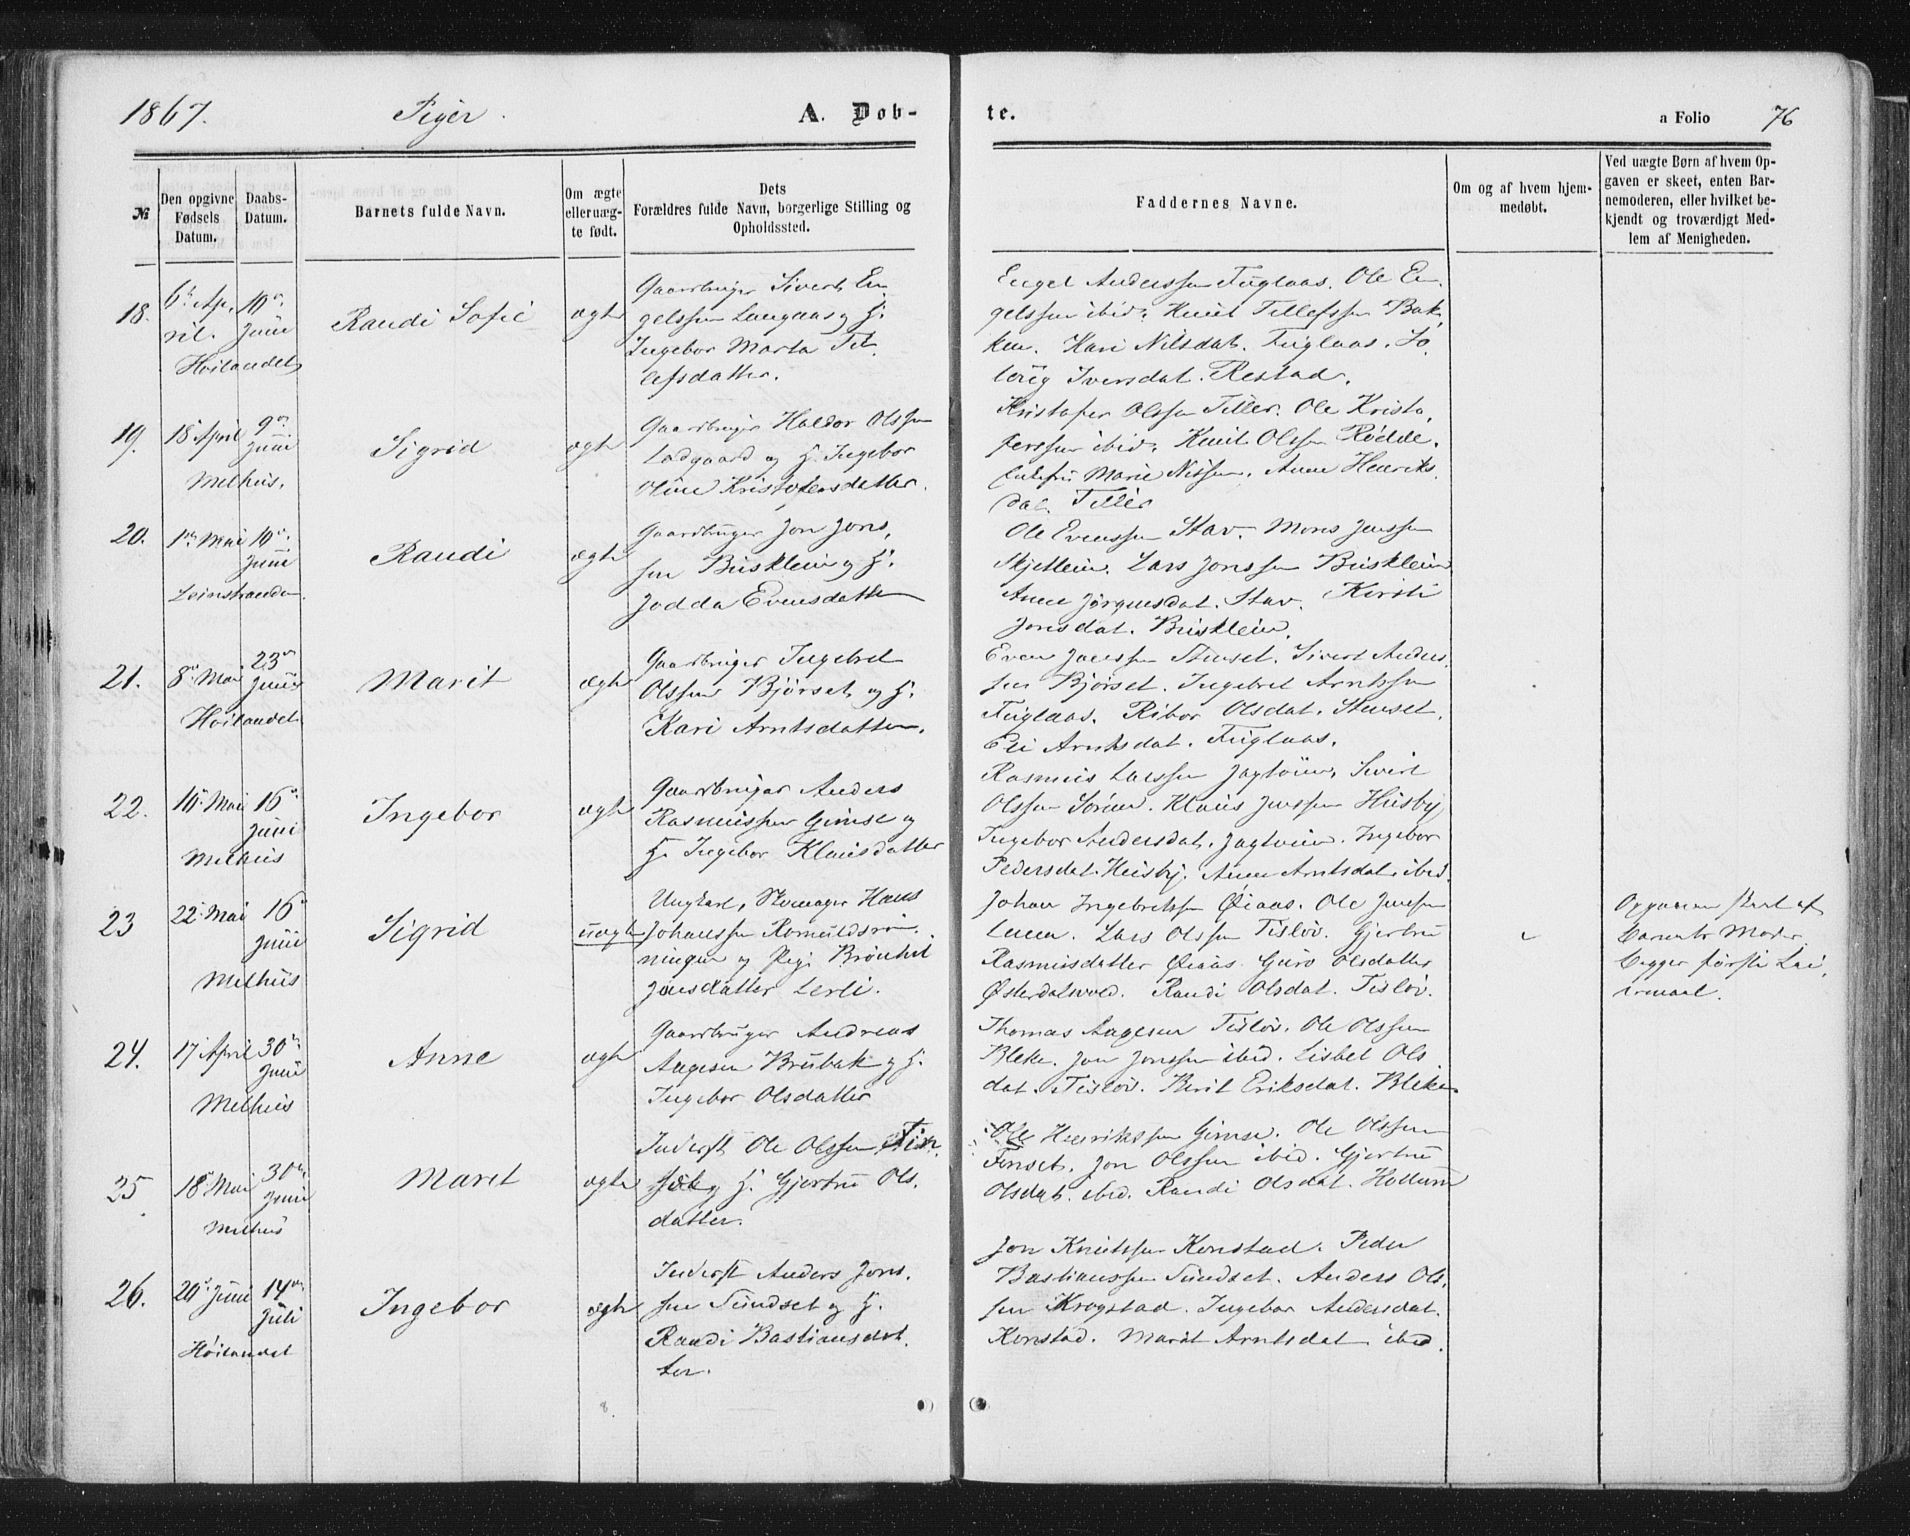 1867. Piger. A. Døb-
te. a Folio 76
№
Den opgivne
Fødsels
Datum.
Daabs-
Datum.
Barnets fulde Navn.
Om ægte
eller uæg-
te født.
Dets
Forældres fulde Navn, borgerlige Stilling og
Opholdssted.
Faddernes Navne.
Om og af hvem hjem-
medøbt.
Ved uægte Børn af hvem Op-
gaven er skeet, enten Bar-
nemoderen, eller hvilket be-
kjendt og troværdigt Med-
lem af Menigheden.
18.
6te Ap,
ril.
Høilandet
10de
Juni
Randi Sofie
ægte
Gaardbruger Sivert En
gelssen Langaas og H.
Ingebor Marta Til,
lefsdatter.
Engel Anderssen Fuglaas. Ole En,
gelssen ibid. Knut Tillefssen Bak,
ken. Kari Nilsdat. Fuglaas. So,
lvig Iversdat. Restad.
19.
18 April
Melhus.
9de
Juni
Sigrid
ægte
Gaardbruger Haldor Olssen
Ladgaard og H. Ingebor
Oline Kristofersdatter.
Kristofer Olssen Tiller. Ole Kristo,
ferssen ibid. Knut Olssen Rødde.
Marie Nissen. Anne Henriks
dat. Tiller
20.
1ste Mai
Leinstranden.
10de
Juni
Randi
ægte
Gaardbruger Jon Jons,
sen Busklein og H.
Jodda Evensdatter
Ole Evenssen Stav. Mons Jenssen
Skjetlein. Lars Jonssen Busklein
Anne Jørgensdat. Stav. Kirsti
Jonsdat. Busklein.
21.
8de Mai
Høilandet
23de
Juni
Marit
ægte
Gaardbruger Ingebret
Olssen Bjørset og H.
Kari Arntsdatter.
Even Jonssen Stenset. Sivert Anders,
sen Bjørset. Ingebret Arntssen
Fuglaas. Ribor Olsdat. Stenset.
Eli Arntsdat. Fuglaas.
22.
10de Mai
Melhus
16de
Juni
Ingebor
ægte
Gaardbruger Anders
Rasmussen Gimse og
H. Ingebor Klausdatter
Rasmus Larssen Jagtøien, Sivert
Olssen Søreen. Klaus Jenssen Husby
Ingebor Andersdat. Jagtøien. Ingebor
Pedersdat. Husby. Anne Arntsdat. ibid.
23
22de Mai
Melhus
16de
Juni
Sigrid
uægte
Ungkarl, Skomager Hans
Johanssen Romuldsrø,
ningen og Pige Brønhil
Jensdatter Lerli.
Johan Ingebrikssen Øiaas. Ole Jenssen
Lenen. Lars Olssen Tisløv. Gjertru
Rasmusdatter Øiaas. Guro Olsdatter
Østerdalsvold. Randi Olsdat. Tisløv.
Opgaven skeet af
Barnets Moder.
Begges første Lei,
ermaal.
24.
17 April
Melhus
30te
Juni
Anne
ægte
Gaardbruger Andreas
Aagesen Brubak og H.
Ingebor Olsdatter
Thomas Aagesen Tisløv. Ole Olssen
Bleke. Jon Jonssen ibid. Lisbet Ols
dat. Tisløv. Berit Eriksdat. Bleke
25.
18de Mai
Melhus
30te
Juni
Maret
ægte
Inderst Ole Olssen Fin,
set og H. Gjertru Ols,
datter.
Ole Henrikssen Gimse. Ole Olssen
Finset. Jon Olssen ibid. Gjertru
Olsdat. ibid. Randi Olsdat. Hollum
26.
20de Juni
Høilandet
14de
Juli
Ingebor
ægte
Inderst Anders Jons,
sen Sundset og H.
Randi Bastiansdat,
ter.
Jon Knutssen Konstad. Peder
Bastianssen Sundset. Anders Ols,
sen Krogstad. Ingebor Andersdat.
Konstad. Marit Arntsdat ibid.